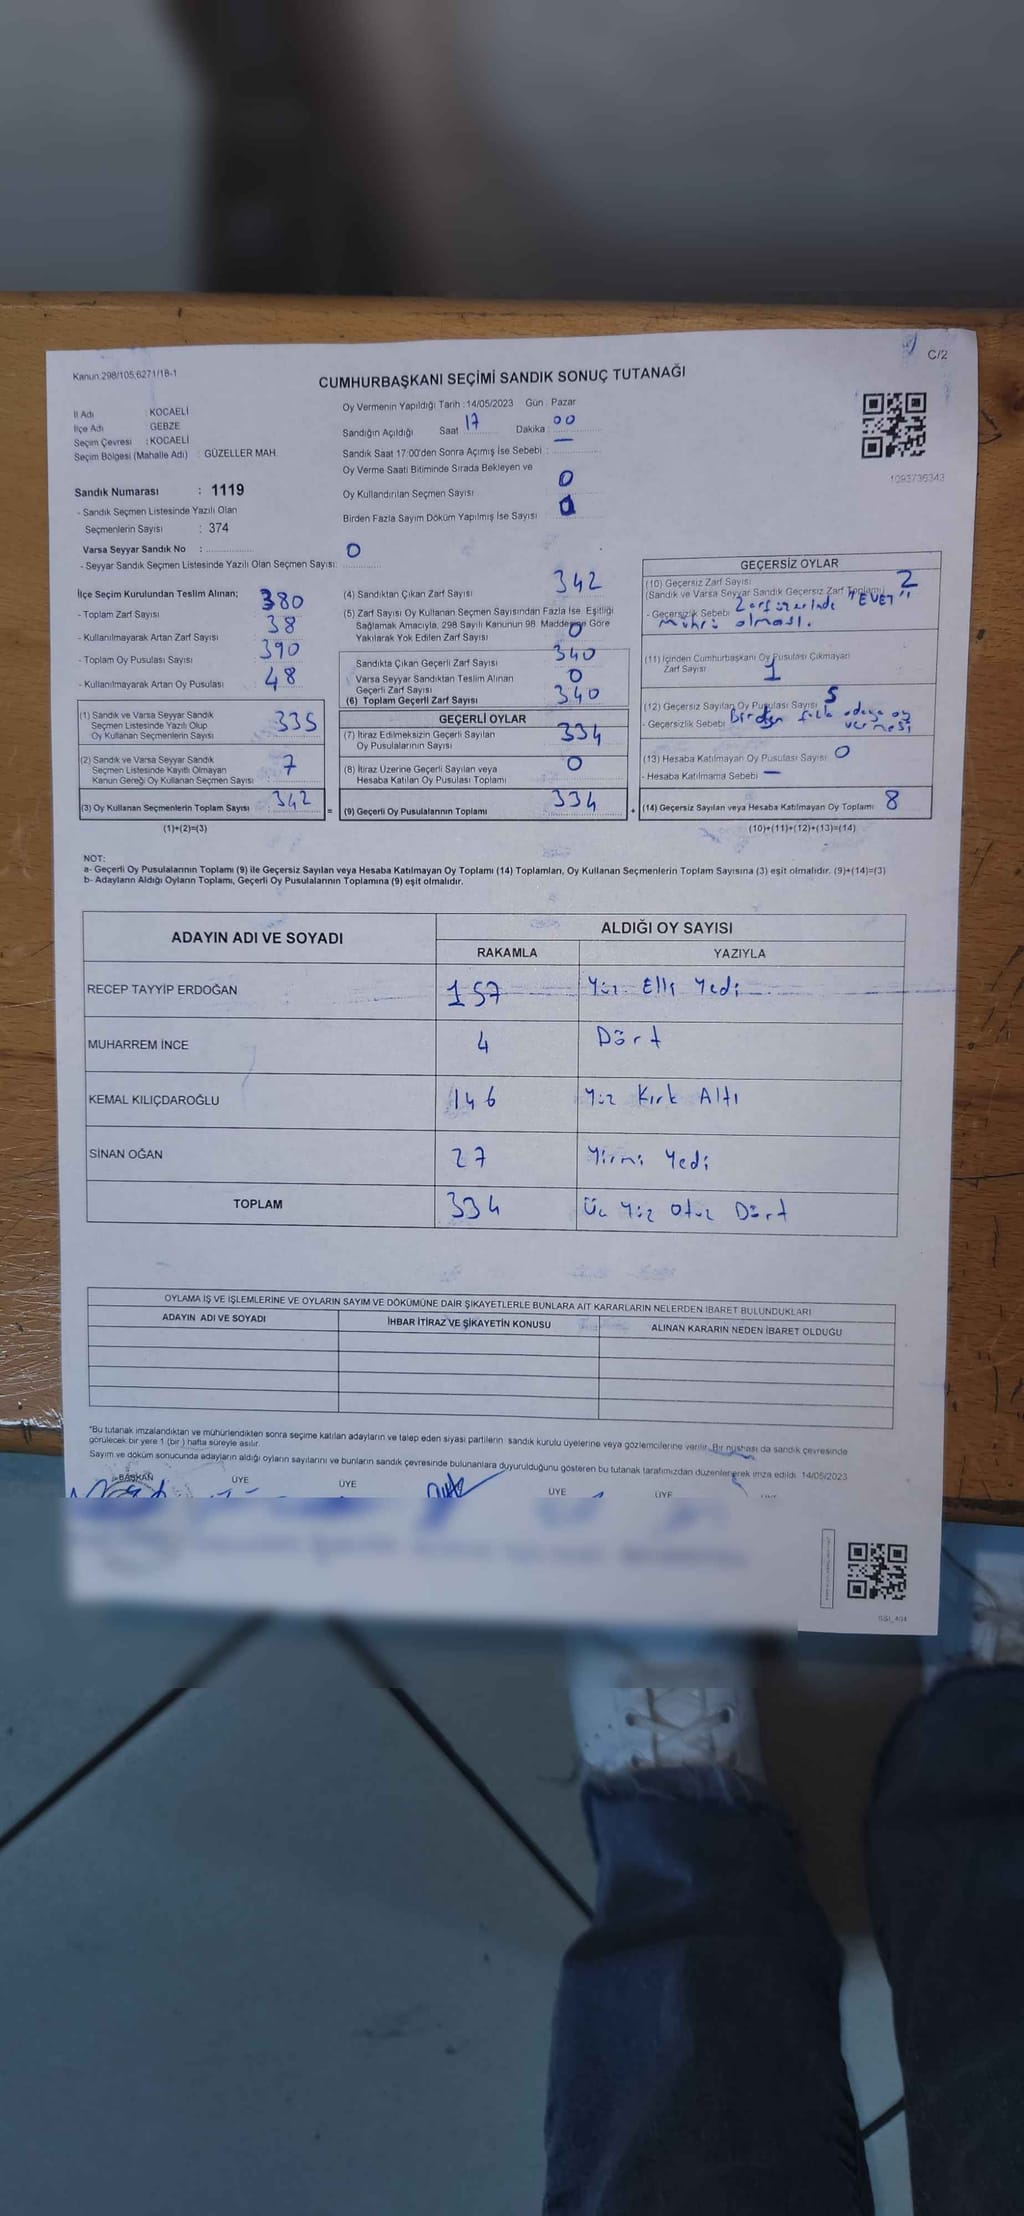 Kanun:298/105,6271/18-1
C/2
CUMHURBAŞKANI SEÇİMİ SANDIK SONUÇ TUTANAĞI
İl Adı : KOCAELİ
İlçe Adı : GEBZE
Seçim Çevresi : KOCAELİ
Seçim Bölgesi (Mahalle Adı) : GÜZELLER MAH.
Sandık Numarası : 1119
- Sandık Seçmen Listesinde Yazılı Olan
Seçmenlerin Sayısı : 374
Varsa Seyyar Sandık No :
- Seyyar Sandık Seçmen Listesinde Yazılı Olan Seçmen Sayısı: 0
Oy Vermenin Yapıldığı Tarih :14/05/2023 Gün : Pazar
Sandığın Açıldığı Saat 17 Dakika : 00
Sandık Saat 17:00'den Sonra Açımış İse Sebebi : —
Oy Verme Saati Bitiminde Sırada Bekleyen ve
Oy Kullandırılan Seçmen Sayısı 0
Birden Fazla Sayım Döküm Yapılmış İse Sayısı 0
1093736343
İlçe Seçim Kurulundan Teslim Alınan;
- Toplam Zarf Sayısı 380
- Kullanılmayarak Artan Zarf Sayısı 38
- Toplam Oy Pusulası Sayısı 390
- Kullanılmayarak Artan Oy Pusulası 48
(1) Sandık ve Varsa Seyyar Sandık
Seçmen Listesinde Yazılı Olup
Oy Kullanan Seçmenlerin Sayısı 335
(2) Sandık ve Varsa Seyyar Sandık
Seçmen Listesinde Kayıtlı Olmayan
Kanun Gereği Oy Kullanan Seçmen Sayısı 7
(3) Oy Kullanan Seçmenlerin Toplam Sayısı 342
(1)+(2)=(3)
(4) Sandıktan Çıkan Zarf Sayısı 342
(5) Zarf Sayısı Oy Kullanan Seçmen Sayısından Fazla İse, Eşitliği
Sağlamak Amacıyla, 298 Sayılı Kanunun 98. Maddesine Göre
Yakılarak Yok Edilen Zarf Sayısı 0
Sandıkta Çıkan Geçerli Zarf Sayısı 340
Varsa Seyyar Sandıktan Teslim Alınan
Geçerli Zarf Sayısı 0
(6) Toplam Geçerli Zarf Sayısı 340
GEÇERLİ OYLAR
(7) İtiraz Edilmeksizin Geçerli Sayılan
Oy Pusulalarının Sayısı 334
(8) İtiraz Üzerine Geçerli Sayılan veya
Hesaba Katılan Oy Pusulası Toplamı 0
(9) Geçerli Oy Pusulalarının Toplamı 334
GEÇERSİZ OYLAR
(10) Geçersiz Zarf Sayısı 2
(Sandık ve Varsa Seyyar Sandık Geçersiz Zarf Toplamı)
- Geçersizlik Sebebi Zarf üzerinde "EVET"
mührü olması.
(11) İçinden Cumhurbaşkanı Oy Pusulası Çıkmayan
Zarf Sayısı 1
(12) Geçersiz Sayılan Oy Pusulası Sayısı 5
- Geçersizlik Sebebi Birden fazla adaya oy
vermesi
(13) Hesaba Katılmayan Oy Pusulası Sayısı 0
- Hesaba Katılmama Sebebi —
(14) Geçersiz Sayılan veya Hesaba Katılmayan Oy Toplamı 8
(10)+(11)+(12)+(13)=(14)
NOT:
a- Geçerli Oy Pusulalarının Toplamı (9) ile Geçersiz Sayılan veya Hesaba Katılmayan Oy Toplamı (14) Toplamları, Oy Kullanan Seçmenlerin Toplam Sayısına (3) eşit olmalıdır. (9)+(14)=(3)
b- Adayların Aldığı Oyların Toplamı, Geçerli Oy Pusulalarının Toplamına (9) eşit olmalıdır.
ADAYIN ADI VE SOYADI ALDIĞI OY SAYISI
RAKAMLA YAZIYLA
RECEP TAYYİP ERDOĞAN 157 Yüz Elli Yedi
MUHARREM İNCE 4 Dört
KEMAL KILIÇDAROĞLU 146 Yüz Kırk Altı
SİNAN OĞAN 27 Yirmi Yedi
TOPLAM 334 Üç Yüz Otuz Dört
OYLAMA İŞ VE İŞLEMLERİNE VE OYLARIN SAYIM VE DÖKÜMÜNE DAİR ŞİKAYETLERLE BUNLARA AİT KARARLARIN NELERDEN İBARET BULUNDUKLARI
ADAYIN ADI VE SOYADI İHBAR İTİRAZ VE ŞİKAYETİN KONUSU ALINAN KARARIN NEDEN İBARET OLDUĞU
"Bu tutanak imzalandıktan ve mühürlendikten sonra seçime katılan adayların ve talep eden siyasi partilerin sandık kurulu üyelerine veya gözlemcilerine verilir. Bir nushası da sandık çevresinde
görülecek bir yere 1 (bir ) hafta süreyle asılır.
Sayım ve döküm sonucunda adayların aldığı oyların sayılarını ve bunların sandık çevresinde bulunanlara duyurulduğunu gösteren bu tutanak tarafımızdan düzenlenerek imza edildi. 14/05/2023
BAŞKAN ÜYE ÜYE ÜYE ÜYE